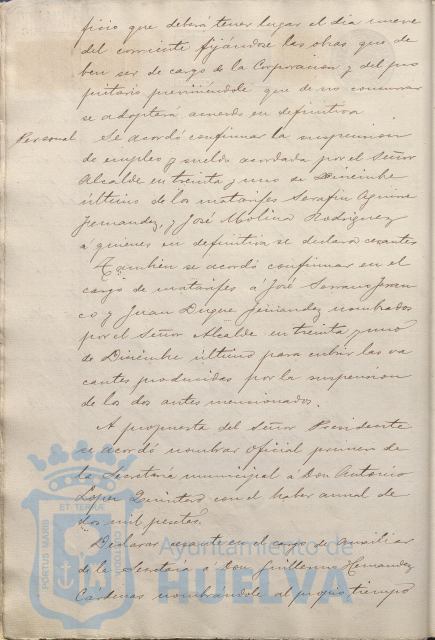 ficio que deberá tener lugar el dia nueve
del corriente fijándose las obras que de
ben ser de cargo de la Corporacion y del pro
pietario previniéndole que de no concurrir
se adoptará acuerdo en definitiva
Personal. Se acordó confirmar la suspension
de empleo y sueldo acordada por el Señor
Alcalde en treinta y uno de Diciembre
último de los matarifes Serafin Aguirre
Fernandez, y José Molina Rodriguez
á quienes en definitiva se declara cesantes
Tambien se acordó confirmar en el
cargo de matarifes á José Serrano Fran
co y Juan Duque Fernandez nombrados
por el Señor Alcalde en treinta y uno
de Diciembre último para cubrir las va
cantes producidas por la suspension
de los dos antes mencionados.
A propuesta del Señor Presidente
se acordó nombrar Oficial primero de
la Secretaría municipal á Don Antonio
Lopez Quintero con el haber annal de
dos mil pesetas.
Declarar cesante en el cargo de Auxiliar
de la Secretaría á Don Guillermo Hernandez
Cárdenas nombrándole al propio tiempo
PORTUS MARIS ET TERRÆ CUSTODIA
Ayuntamiento de
HUELVA